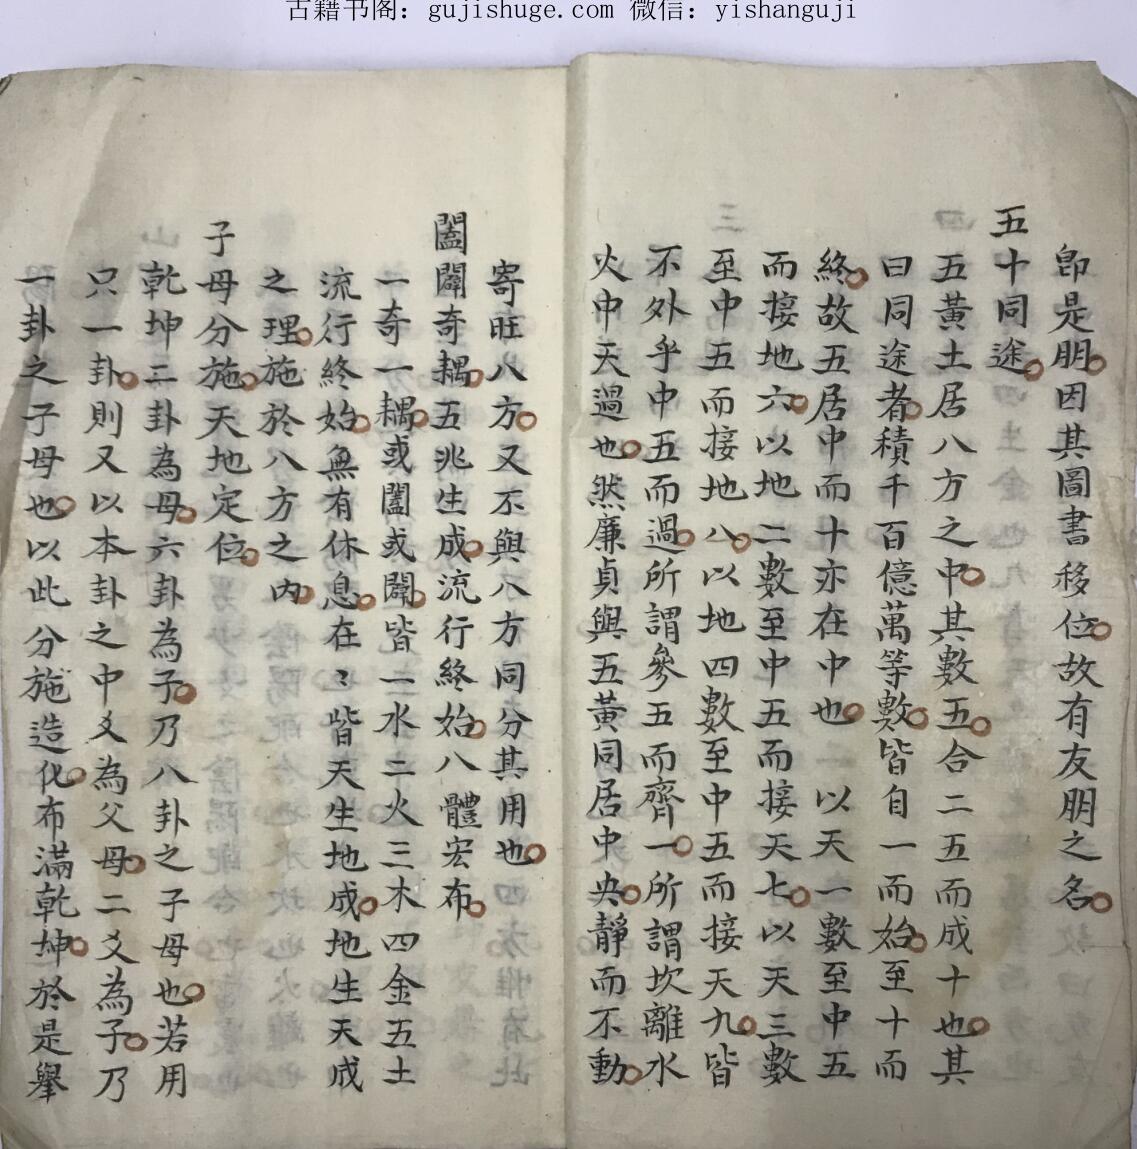 古籍书阁：gujishuge.com 微信：yishanguji
即是朋因其圖書移位故有友朋之名
五十同途
五黃土居八方之中其數五合二五而成十也其
曰同途者積千百億萬等數皆自一而始至十而
終故五居中而十亦在中也以天一數至中五
而接地六以地二數至中五而接天七以天三數
至中五而接地八以地四數至中五而接天九皆
不外乎中五而過所謂參五而齊一所謂坎離水
火中天過也然廉貞與五黃同居中央靜而不動
寄旺八方又不與八方同分其用也
闔闢奇耦五兆生成流行終始八體宏布
一奇一耦或闔或闢皆一水二火三木四金五土
流行終始無有休息在〻皆天生地成地生天成
之理施於八方之內
子母分施天地定位
乾坤二卦為母六卦為子乃八卦之子母也若用
只一卦則又以本卦之中爻為父母二爻為子乃
一卦之子母也以此分施造化布滿乾坤於是舉